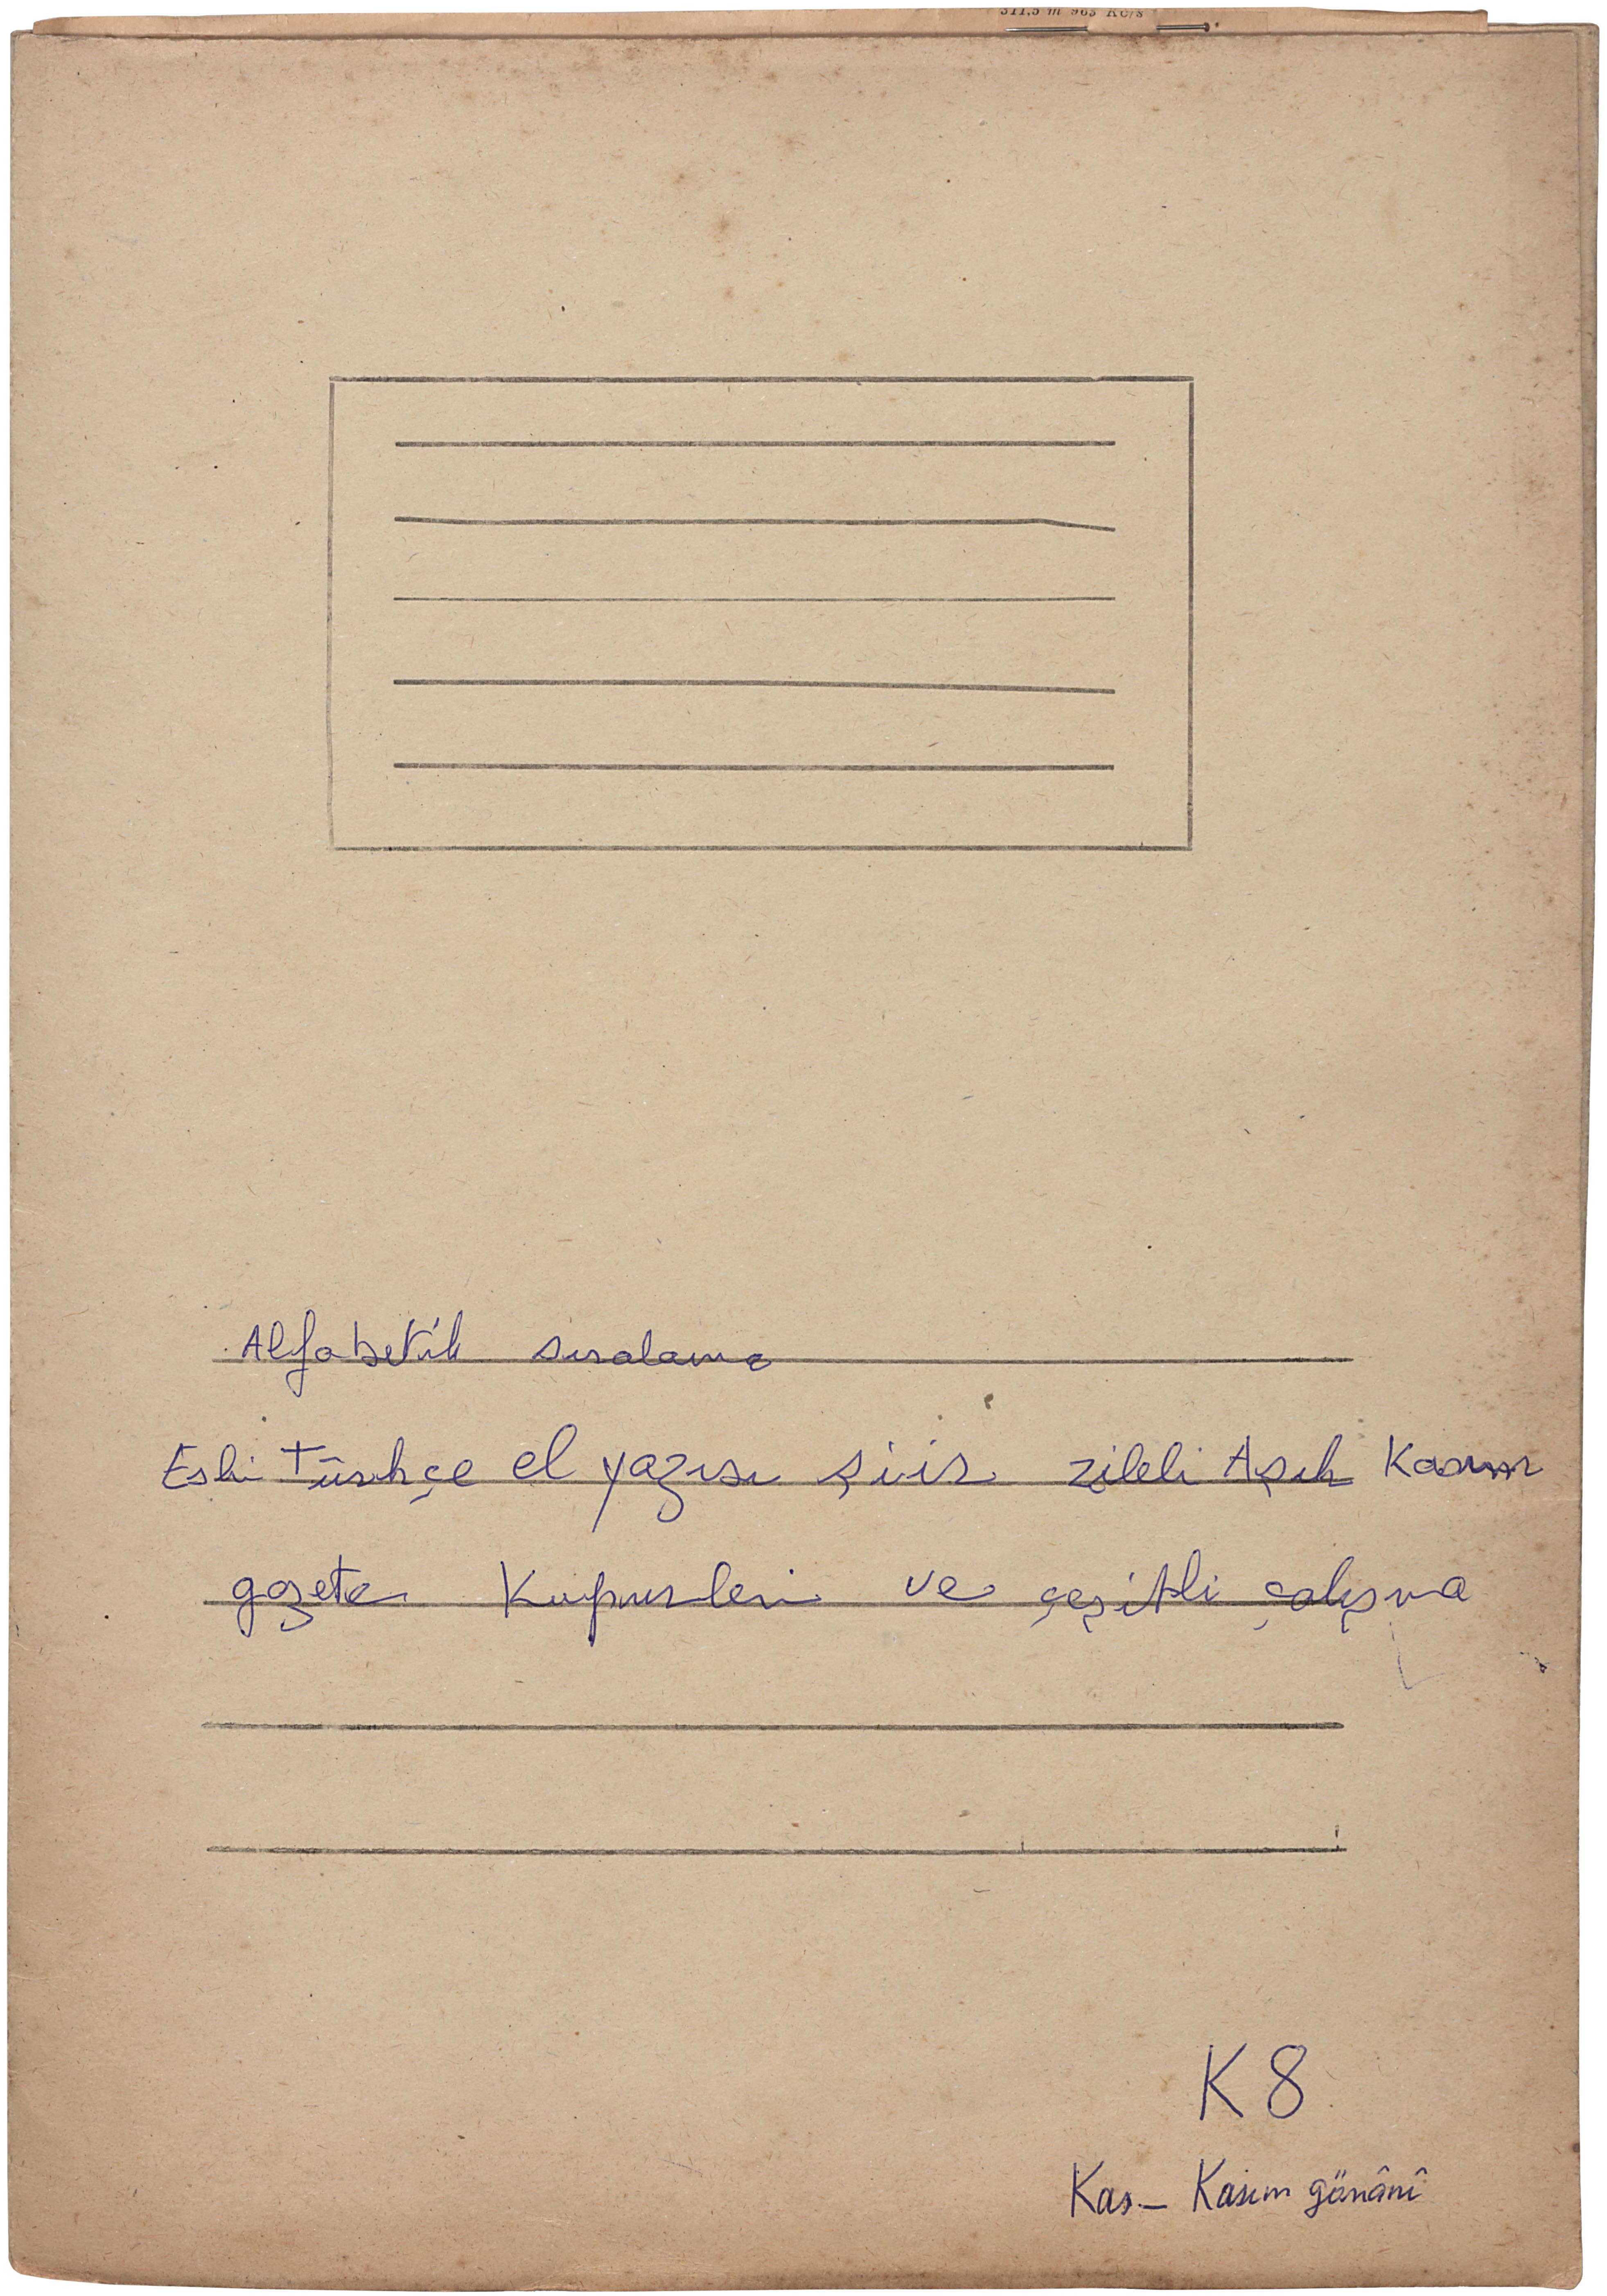 Alfabetik sıralama
Eski Türkçe el yazısı şiir zileli Aşık Kasım
gazete Kupürleri ve çeşitli çalışma
K 8
Kas – Kasım